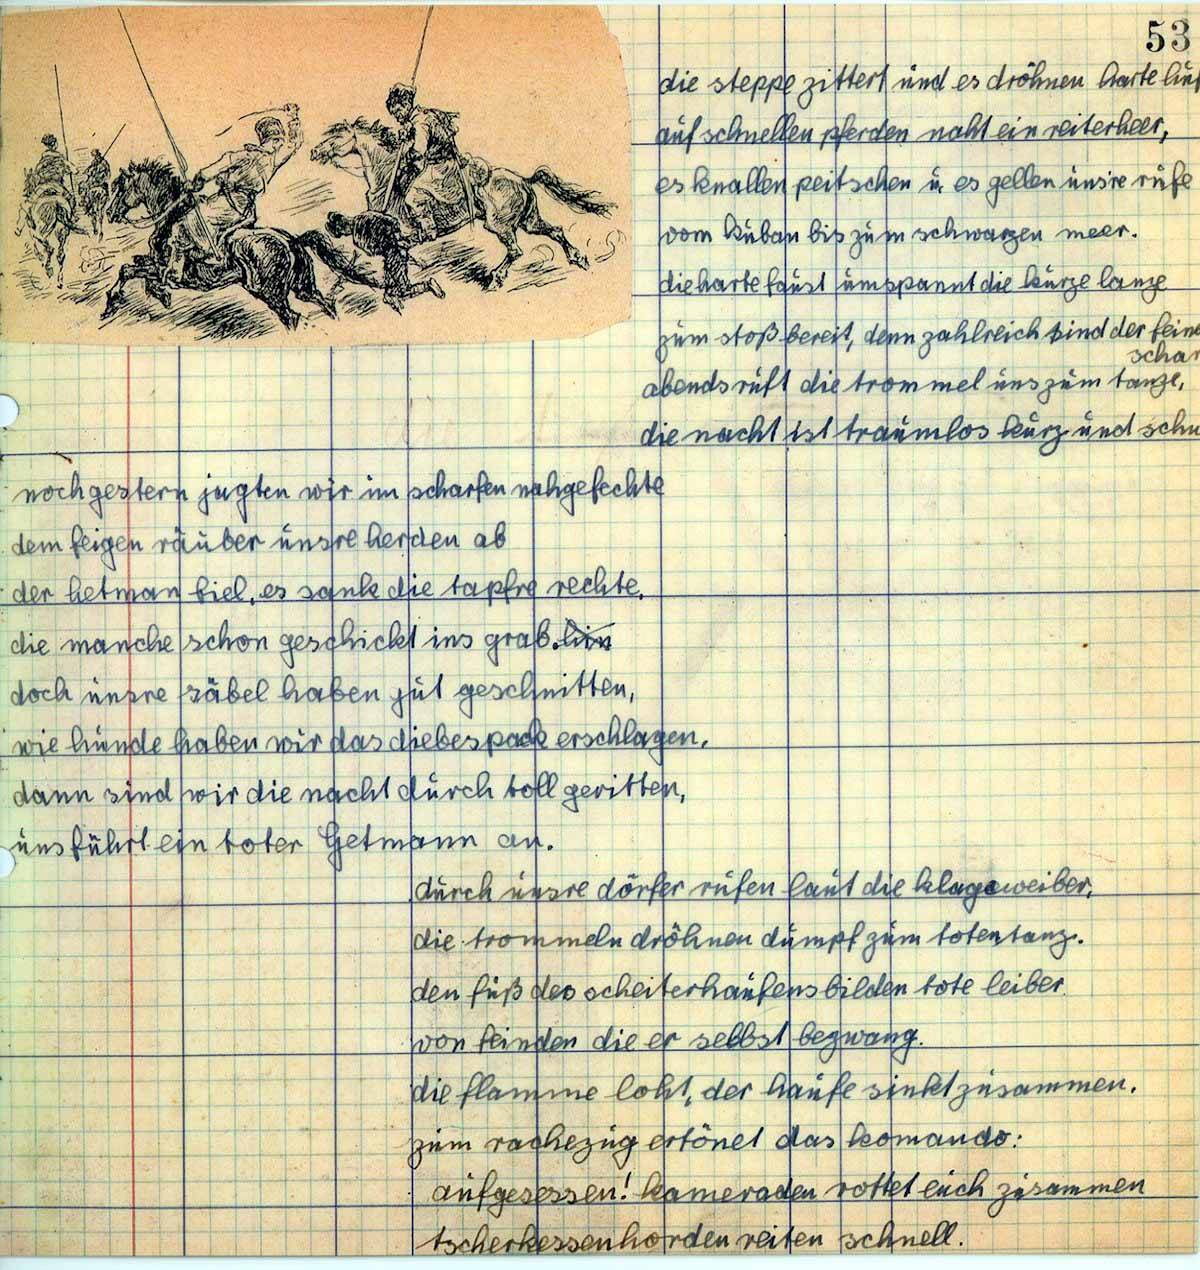 53
die steppe zittert und es dröhnen harte huf
auf schnellen pferden naht ein reiterheer,
es knallen peitschen u. es gellen uns're rufe
vom kuban bis zum schwarzen meer.
die harte faust umspannt die kurze lanze
zum stoß bereit, denn zahlreich sind der feine
schar
abends ruft die trommel uns zum tanze,
die nacht ist traumlos kurz und schw
noch gestern jagten wir im scharfen nahgefechte
dem feigen räuber unsre herden ab
der hetman fiel, es sank die tapfre rechte,
die manche schon geschickt ins grab. hin
doch unsre säbel haben gut geschnitten,
wie hunde haben wir das diebespack erschlagen,
dann sind wir die nacht durch toll geritten,
uns führt ein toter Hetmann an.
durch unsre dörfer rufen laut die klageweiber,
die trommeln dröhnen dumpf zum totentanz.
den fuß des scheiterhaufens bilden tote leiber
von feinden die er selbst bezwang.
die flamme loht, der haufe sinkt zusammen.
zum rachezug ertönet das komando:
aufgesessen! kameraden rottet euch zusammen
tscherkessenhorden reiten schnell.